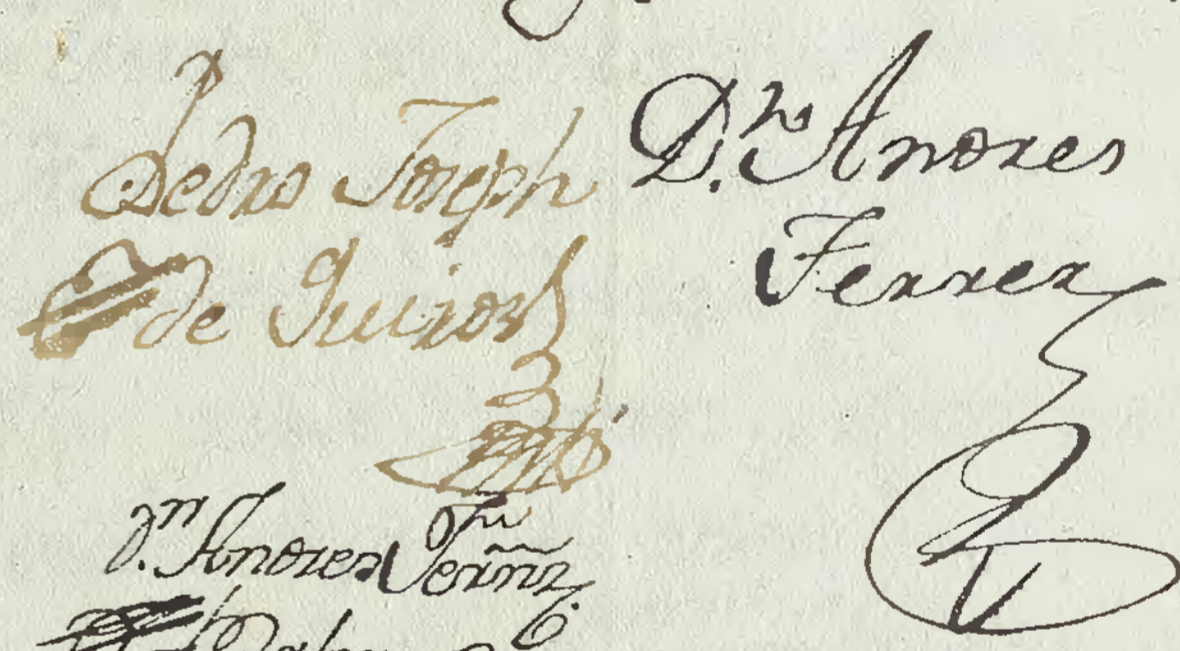 Pedro Joseph
de Quiros
D.ⁿ Andres
Ferrer
D.ⁿ Andres